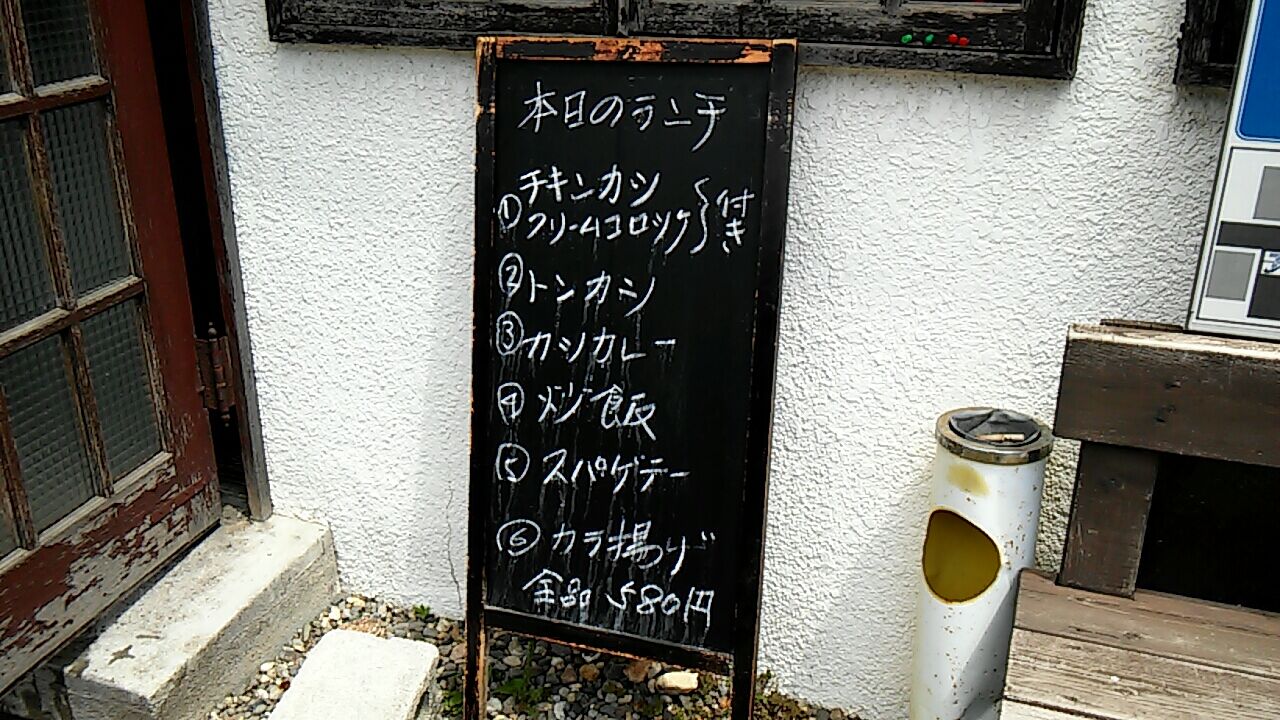 本日のランチ
① チキンカツ
クリームコロッケ } 付き
② トンカツ
③ カツカレー
④ 炒飯
⑤ スパゲテー
⑥ カラ揚げ
全品 580円